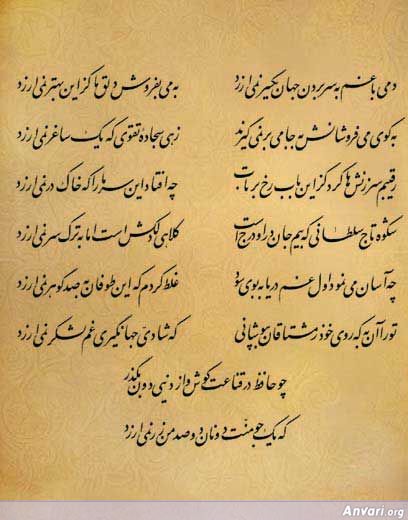 دمی با غم به سر بردن جهان یکسر نمی‌ارزد به می بفروش دلق ما کز این بهتر نمی‌ارزد
به کوی می فروشانش به جامی بر نمی‌گیرند زهی سجاده تقوی که یک ساغر نمی‌ارزد
رقیبم سرزنش‌ها کرد کز این باب رخ برتاب چه افتاد این سر ما را که خاک در نمی‌ارزد
شکوه تاج سلطانی که بیم جان در او درج است کلاهی دلکش است اما به ترک سر نمی‌ارزد
چه آسان می‌نمود اول غم دریا به بوی سود غلط کردم که این طوفان به صد گوهر نمی‌ارزد
تو را آن به که روی خود ز مشتاقان بپوشانی که شادی جهانگیری غم لشکر نمی‌ارزد
چو حافظ در قناعت کوش و از دنیی دون بگذر
که یک جو منت دونان دو صد من زر نمی‌ارزد
Anvari.org